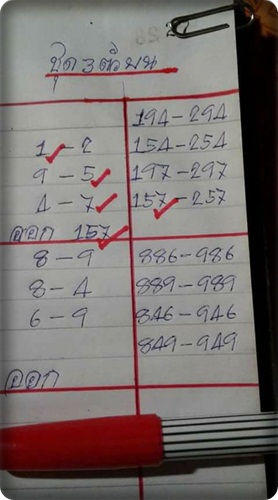 ชุด 3 ตัวบน
194-294
1-2 154-254
9-5 197-297
4-7 157-257
ออก 157
8-9 886-986
8-4 889-989
6-9 846-946
849-949
ออก